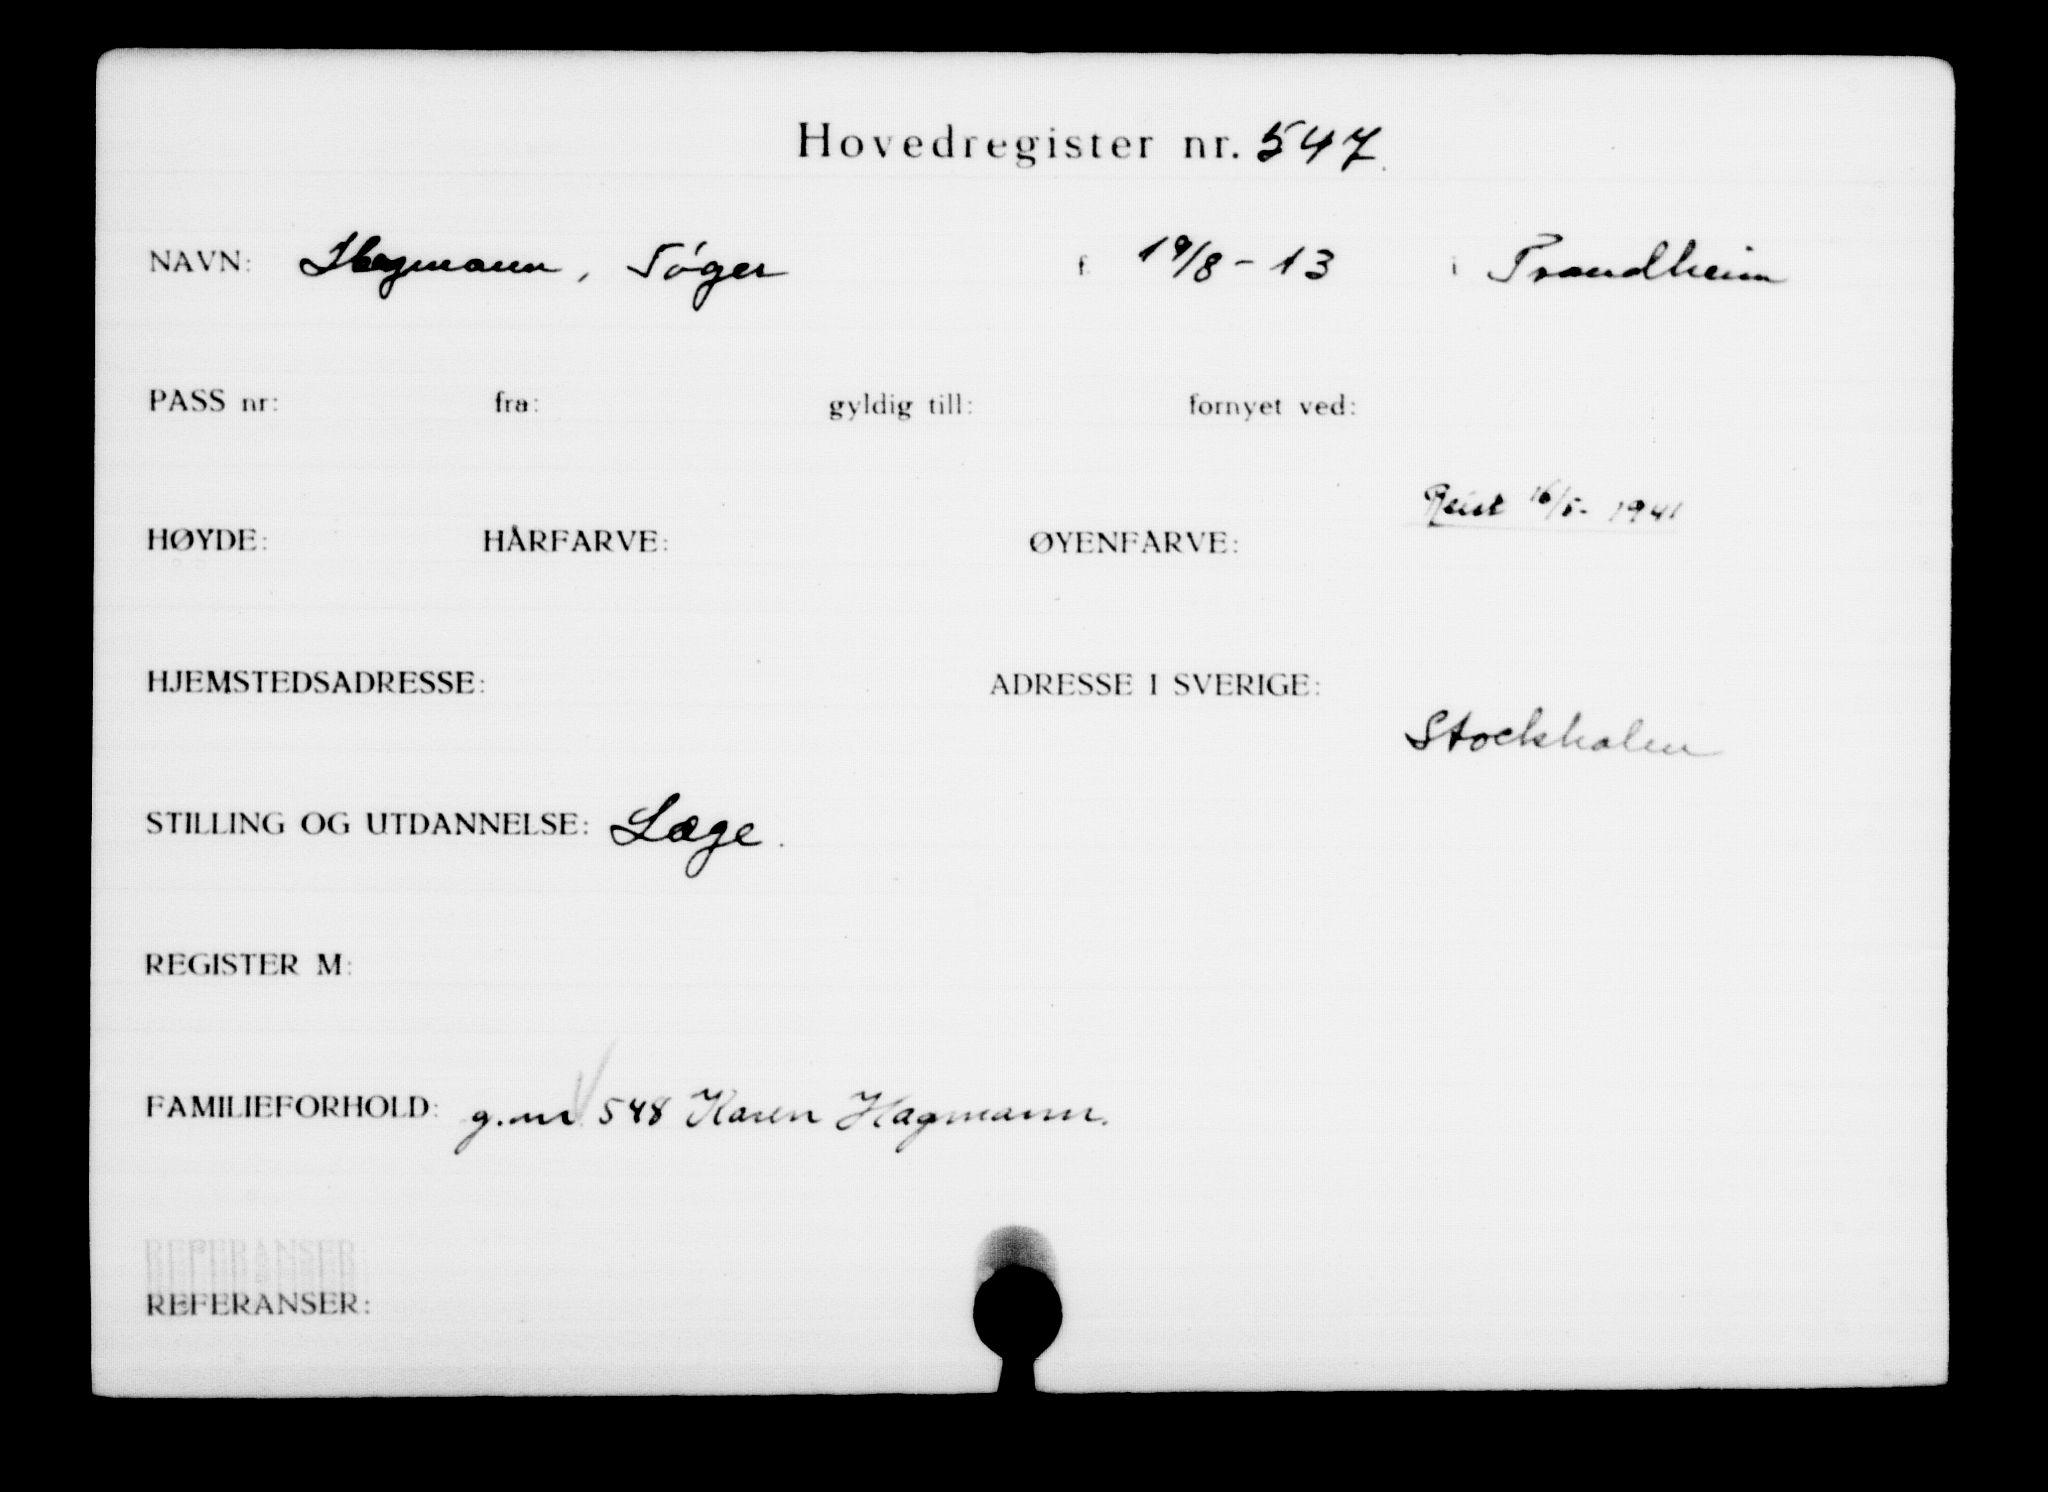 Hovedregister nr. 547.
NAVN: Hagmann, Töger f. 19/8 - 13 i Trondheim
PASS nr: fra: gyldig till: fornyet ved:
Reist 16/5- 1941
HØYDE: HÅRFARVE: ØYENFARVE:
HJEMSTEDSADRESSE: ADRESSE I SVERIGE:
Stockholm
STILLING OG UTDANNELSE: Læge.
REGISTER M:
FAMILIEFORHOLD: g.m. 548 Karen Hagmann.
REFERANSER: